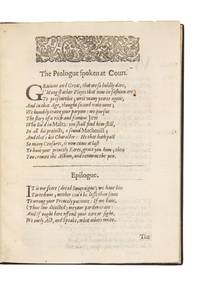 The Prologue spoken at Court.
GRacious and Great, that we so boldly dare,
('Mongst other Playes that now in fashion are)
To present this, writ many yeares agone,
And in that Age, thought second unto none;
We humbly crave your pardon: we pursue
The story of a rich and famous Jew
Who liv'd in Malta: you shall find him still,
In all his projects, a sound Macheuill;
And that's his Character: He that hath past
So many Censures, is now come at last
To have your princely Eares, grace you him; then
You crowne the Action, and renowne the pen.
Epilogue.
IT is our feare (dread Soveraigne) we have bin
Too tedious; neither can't be lesse than sinne
To wrong your Princely patience: If we have,
(Thus low dejected) we your pardon crave:
And if ought here offend your eare or sight,
We onely Act, and Speake, what others write.
The